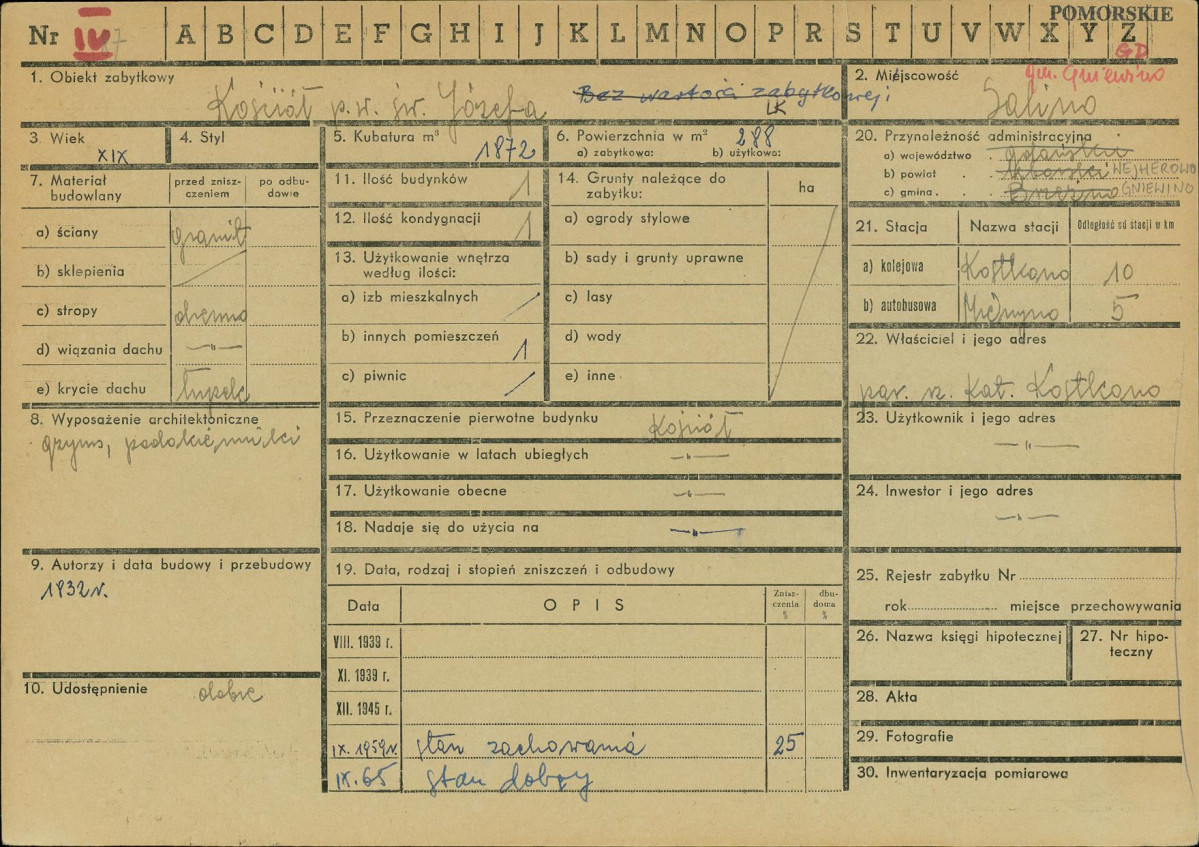 POMORSKIE
Nr IV A B C D E F G H I J K L M N O P R S T U V W X Y Z
GD
1. Obiekt zabytkowy
Kościół p.w. św. Józefa
Bez wartości zabytkowej!
ŁK
2. Miejscowość
gm. Gniewino
Salino
3. Wiek
XIX
4. Styl
5. Kubatura m³
1872
6. Powierzchnia w m²
288
a) zabytkowa: b) użytkowa:
7. Materiał budowlany
przed zniszczeniem
po odbudowie
a) ściany granit
b) sklepienia
c) stropy drewno
d) wiązania dachu —„—
e) krycie dachu łupek
8. Wyposażenie architektoniczne
gzyms,
9. Autorzy i data budowy i przebudowy
1832 r.
10. Udostępnienie dobre
11. Ilość budynków 1
12. Ilość kondygnacji 1
13. Użytkowanie wnętrza według ilości:
a) izb mieszkalnych
b) innych pomieszczeń 1
c) piwnic
14. Grunty należące do zabytku:
ha
a) ogrody stylowe
b) sady i grunty uprawne
c) lasy
d) wody
e) inne
15. Przeznaczenie pierwotne budynku Kościół
16. Użytkowanie w latach ubiegłych —„—
17. Użytkowanie obecne —„—
18. Nadaje się do użycia na —„—
19. Data, rodzaj i stopień zniszczeń i odbudowy
Data
OPIS
Zniszczenia %
dbudowa %
VIII. 1939 r.
XI. 1939 r.
XII. 1945 r.
IX. 1959 r. stan zachowania 25
IX. 65 stan dobry
20. Przynależność administracyjna
a) województwo . gdańskie
b) powiat . . WEJHEROWO
c) gmina . . GNIEWINO
21. Stacja
Nazwa stacji
Odległość od stacji w km
a) kolejowa Kostkowo 10
b) autobusowa 5
22. Właściciel i jego adres
par. rz. kat. Kostkowo
23. Użytkownik i jego adres
—„—
24. Inwestor i jego adres
—„—
25. Rejestr zabytku Nr
rok miejsce przechowywania
26. Nazwa księgi hipotecznej
27. Nr hipoteczny
28. Akta
29. Fotografie
30. Inwentaryzacja pomiarowa